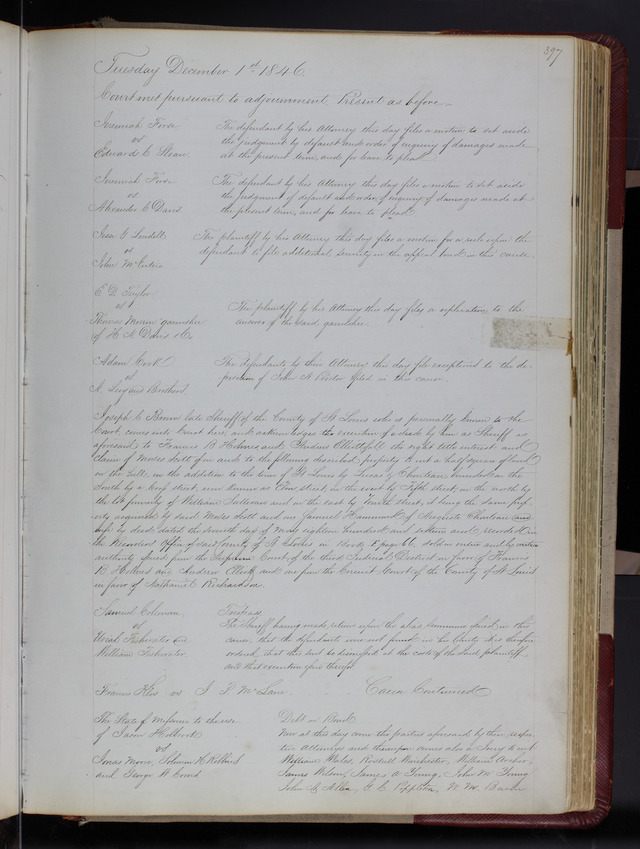 397
Tuesday December 1st 1846.
Court met pursuant to adjournment. Present as before.
Jeremiah Force
vs
Edward C Sloan
The defendant by his Attorney this day files a motion to set aside
the judgment by default and order of inquiry of damages made
at the present term, and for leave to plead
Jeremiah Force
vs
Alexander C Davis
The defendant by his Attorney this day files a motion to set aside
the judgment of default and order of inquiry of damages made at
the present term, and for leave to plead
Jesse G Lindell
vs
John
The plaintiff by his Attorney this day files a motion for a rule upon the
defendant to file additional security in the appeal bond in this cause
E D Taylor
vs
Thomas garnishee
of H N Davis &Co
The plaintiff by his Attorney this day files a replication to the
answer of the said garnishee.
Adam Cook
vs
M. Levy and Brothers
The Defendants by their Attorney this day file exceptions to the de-
position of John A filed in this cause.
Joseph C Brown late Sheriff of the County of St Louis who is personally known to the
Court, comes into Court here, and acknowledges the execution of a deed by him as Sheriff as
aforesaid to Francis B Holmes and Andrew Elliott for all the right title interest and
claim of Moses Scott in and to the following described property to wit a half square of land
on the hill, in the addition to the town of St Louis by Lucas & Chouteau bounded on the
South by a street now known as Pine street, on the west by Fifth street, on the north by
the late property of William Sullivan and on the east by Fourth street, being the same prop-
erty acquired by said Moses Scott and James Hammond of Auguste Chouteau and
wife by deed dated the seventh day of May eighteen hundred and and recorded in
the Recorders Office of said County of St Louis in Book page 66, sold under and by
authority issued from the Supreme Court of the third Judicial District in favor of Francis
B. Holmes and Andrew Elliott and one from the Circuit Court of the County of St Louis
in favor of Nathaniel Richardson
Samuel Coleman
vs
Uriah and
William
Trespass
The Sheriff having made return upon the alias summons issued in this
cause, that the defendants were not found in his County it is therefore
ordered that this suit be dismissed at the costs of the said plaintiff
and that execution issue therefor
Francis vs J P McLane Cause Continued
The State of Missouri to the use
of Jason Holbrook
vs
Jonas Moore, Solomon H Robbins
and George W
Debt on Bond
Now at this day come the parties aforesaid by their respec-
tive Attorneys and thereupon comes also a Jury to wit
William Wales, Russell Winchester, William Archer,
James Wilson, James A Young, John M Young
John G Allen, G C Appleton, W M